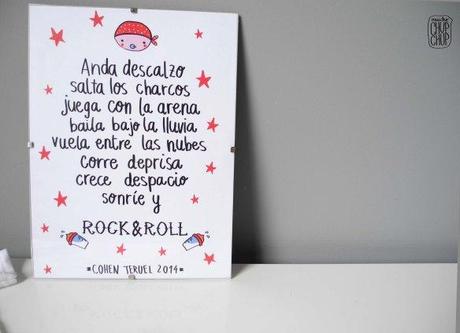 Anda descalzo
salta los charcos
juega con la arena
baila bajo la lluvia
vuela entre las nubes
corre deprisa
crece despacio
sonríe y
ROCK&ROLL
COHEN TERUEL 2014
mucho
CHUP
CHUP